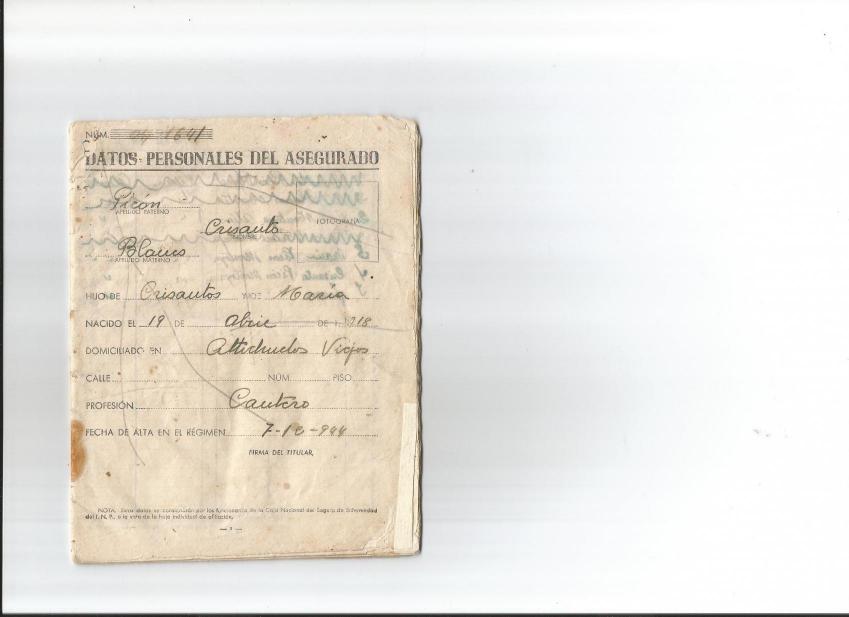 NÚM. 04-1641
DATOS PERSONALES DEL ASEGURADO
Picón
APELLIDO PATERNO
Crisanto
NOMBRE
FOTOGRAFIA
Blanco
APELLIDO MATERNO
HIJO DE Crisantos Y DE María
NACIDO EL 19 DE Abril DE 1.918
DOMICILIADO EN Viejos
CALLE NÚM. PISO
PROFESIÓN Cantero
FECHA DE ALTA EN EL RÉGIMEN 7-10-944
FIRMA DEL TITULAR,
NOTA. Estos datos se consignarán por los funcionarios de la Caja Nacional del Seguro de Enfermedad
del I. N. P., a la vista de la hoja individual de afiliación.